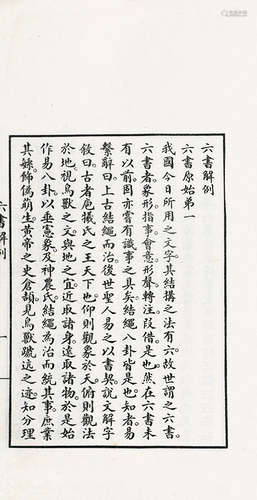 六書解例
六書原始第一
我國今日所用之文字其結搆之法有六故世謂之六書。
六書者象形指事會意形聲轉注叚借是也然在六書未
有以前固亦嘗有識事之具矣結繩八卦皆是也知者易
繫辭曰上古結繩而治後世聖人易之以書契說文解字
敘曰古者庖犧氏之王天下也仰則觀象於天俯則觀法
於地視鳥獸之文與地之宜近取諸身遠取諸物於是始
作易八卦以垂憲象及神農氏結繩為治而統其事庶業
其緐飾偽萌生黃帝之史倉頡見鳥獸蹏迒之迹知分理
六書解例
一